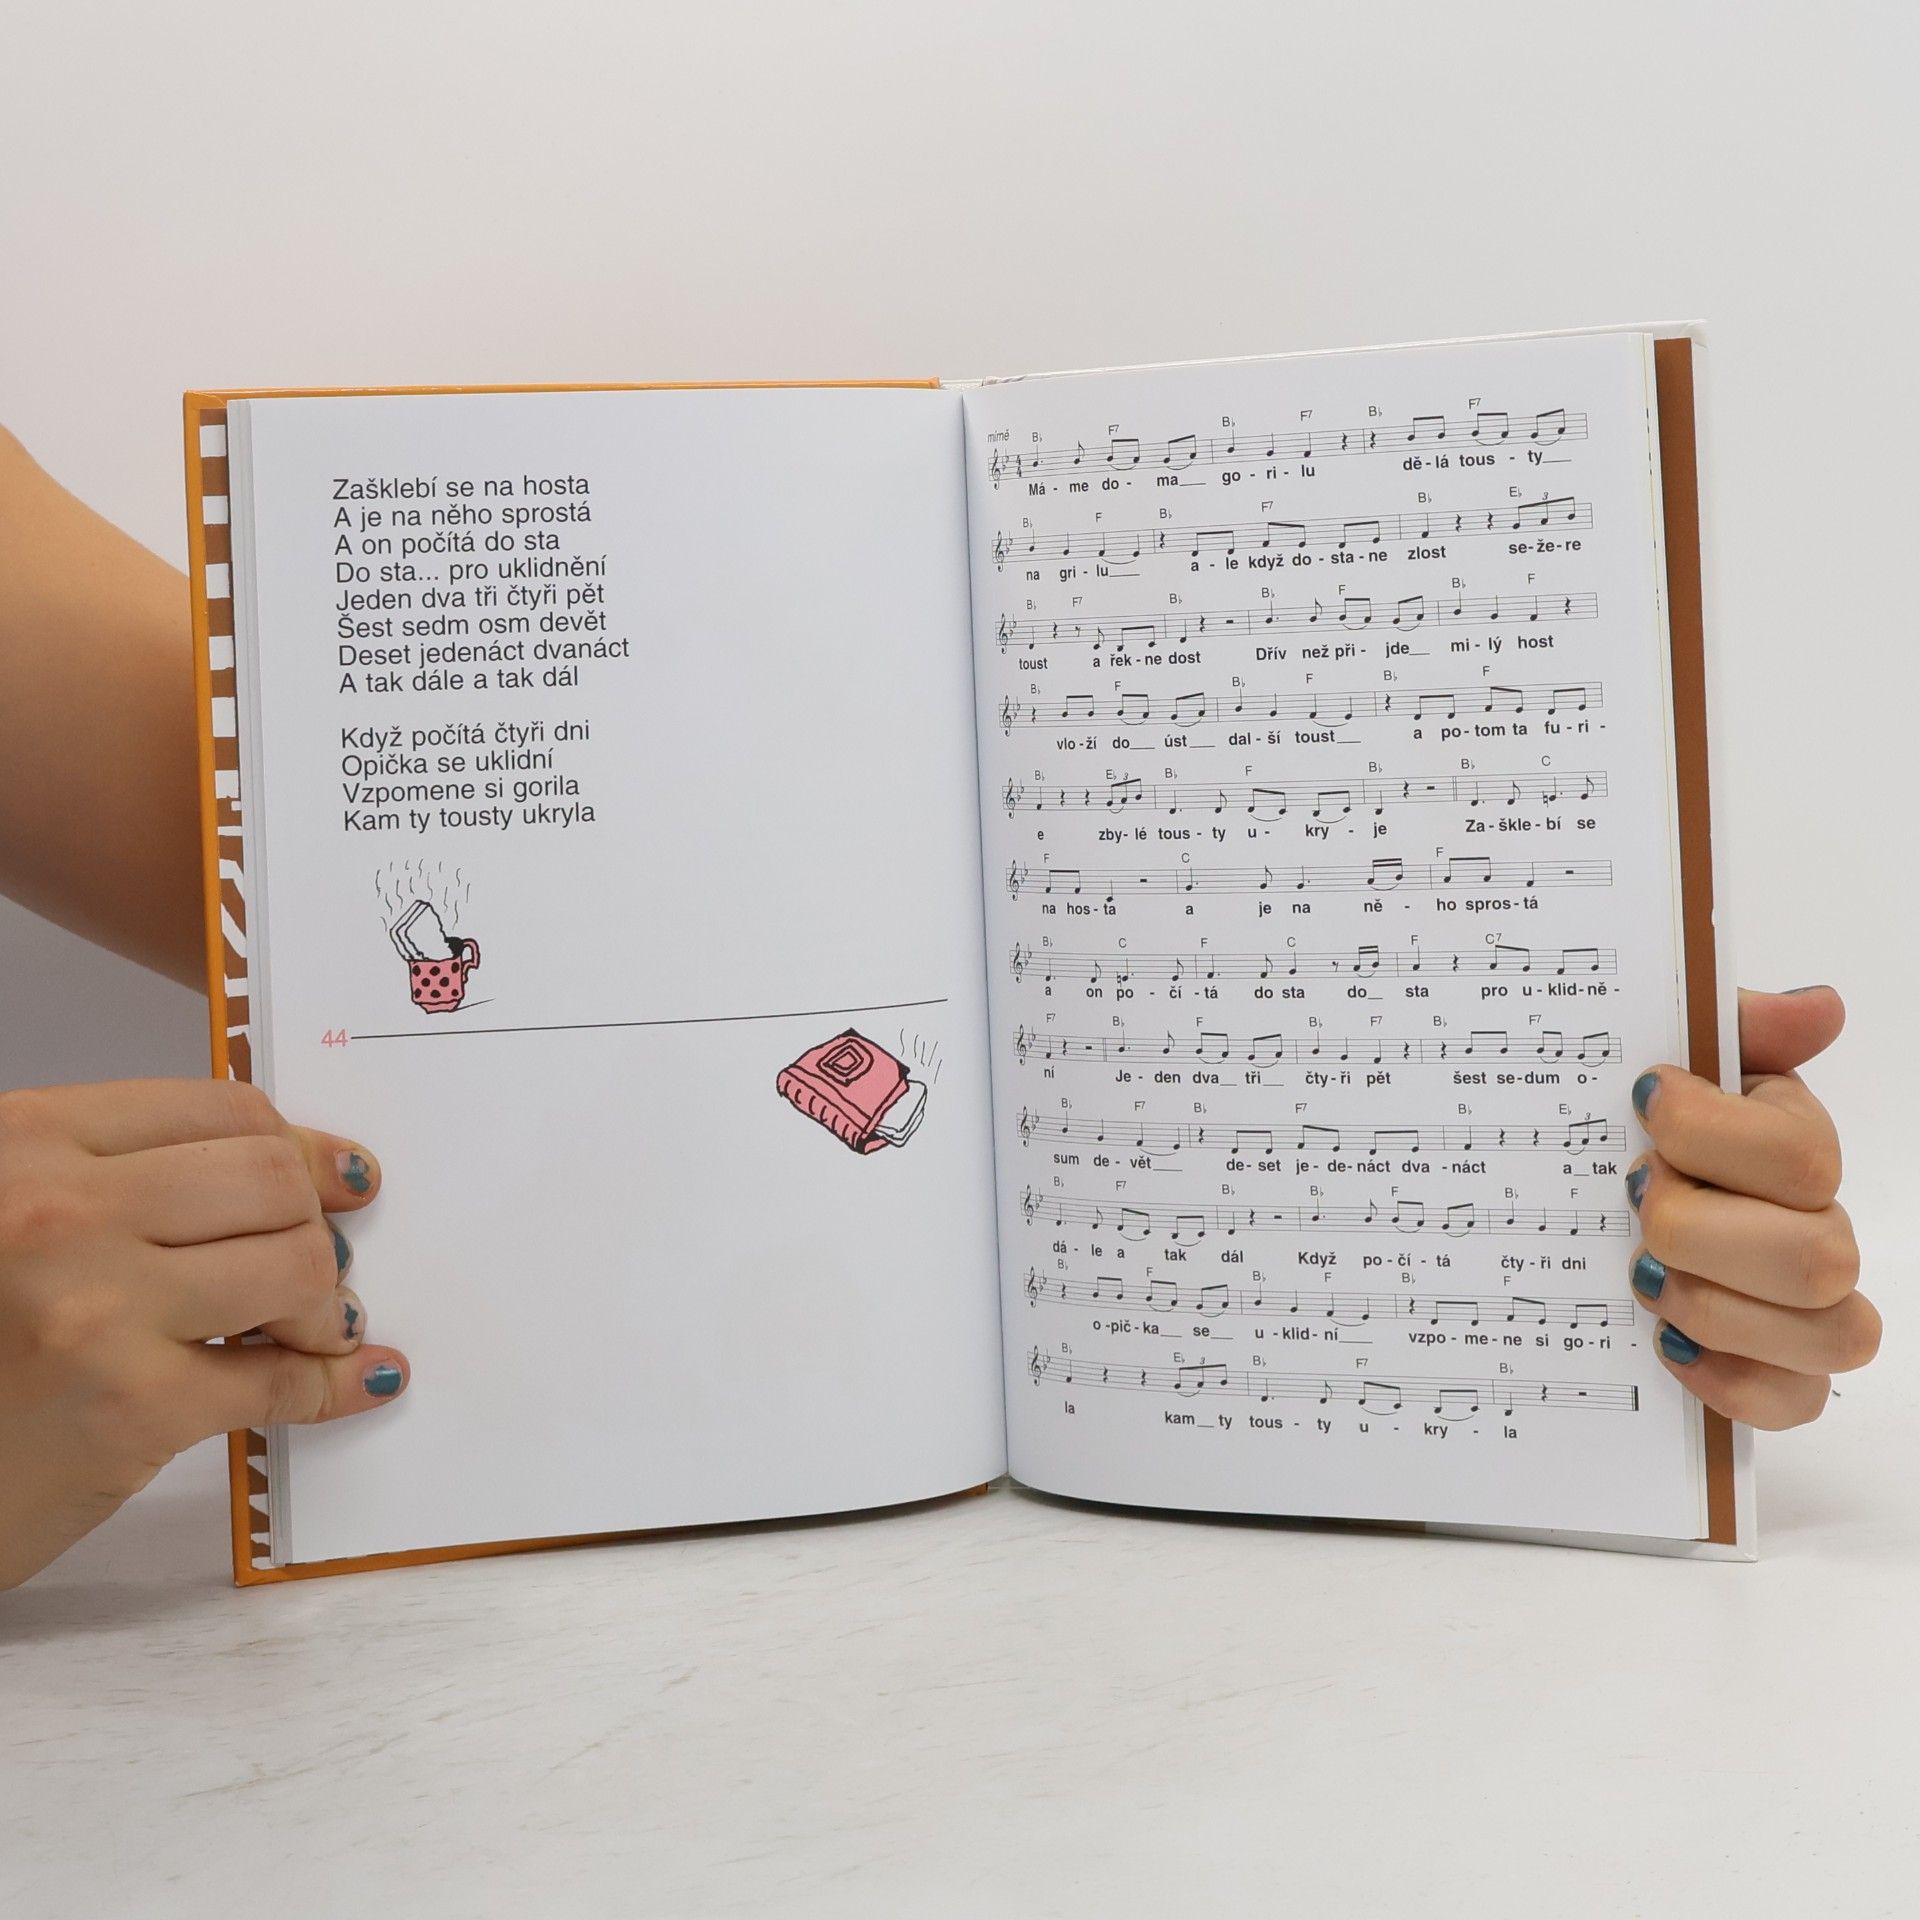 Zašklebí se na hosta
A je na něho sprostá
A on počítá do sta
Do sta... pro uklidnění
Jeden dva tři čtyři pět
Šest sedm osm devět
Deset jedenáct dvanáct
A tak dále a tak dál
Když počítá čtyři dni
Opička se uklidní
Vzpomene si gorila
Kam ty tousty ukryla
44
mírně
B♭ F7 B♭ F7 B♭ F7
Má - me do - ma__ go - ri - lu dě - lá tous - ty__
B♭ F B♭ F7 B♭ E♭ 3
na gri - lu__ a - le když do - sta - ne zlost se - že - re
B♭ F7 B♭ B♭ F B♭ F
toust a řek - ne dost Dřív než při - jde__ mi - lý host
B♭ F B♭ F B♭ F
vlo - ží do__ úst__ dal - ší toust__ a po - tom ta fu - ri -
B♭ E♭ 3 B♭ F B♭ B♭ C
e zby - lé tous - ty u - kry - je Za - škle - bí se
F C F
na hos - ta a je na ně - ho spros - tá
B♭ C F C F C7
a on po - čí - tá do sta do__ sta pro u - klid - ně -
F7 B♭ F B♭ F7 B♭ F7
ní Je - den dva__ tři__ čty - ři pět šest se - dum o -
B♭ F7 B♭ F7 B♭ E♭ 3
sum de - vět__ de - set je - de - náct dva - náct a__ tak
B♭ F7 B♭ B♭ F B♭ F
dá - le a tak dál Když po - čí - tá čty - ři dni
B♭ F B♭ F B♭ F
o - pič - ka__ se__ u - klid - ní__ vzpo - me - ne si go - ri -
B♭ E♭ 3 B♭ F7 B♭
la kam__ ty tous - ty u - kry - la